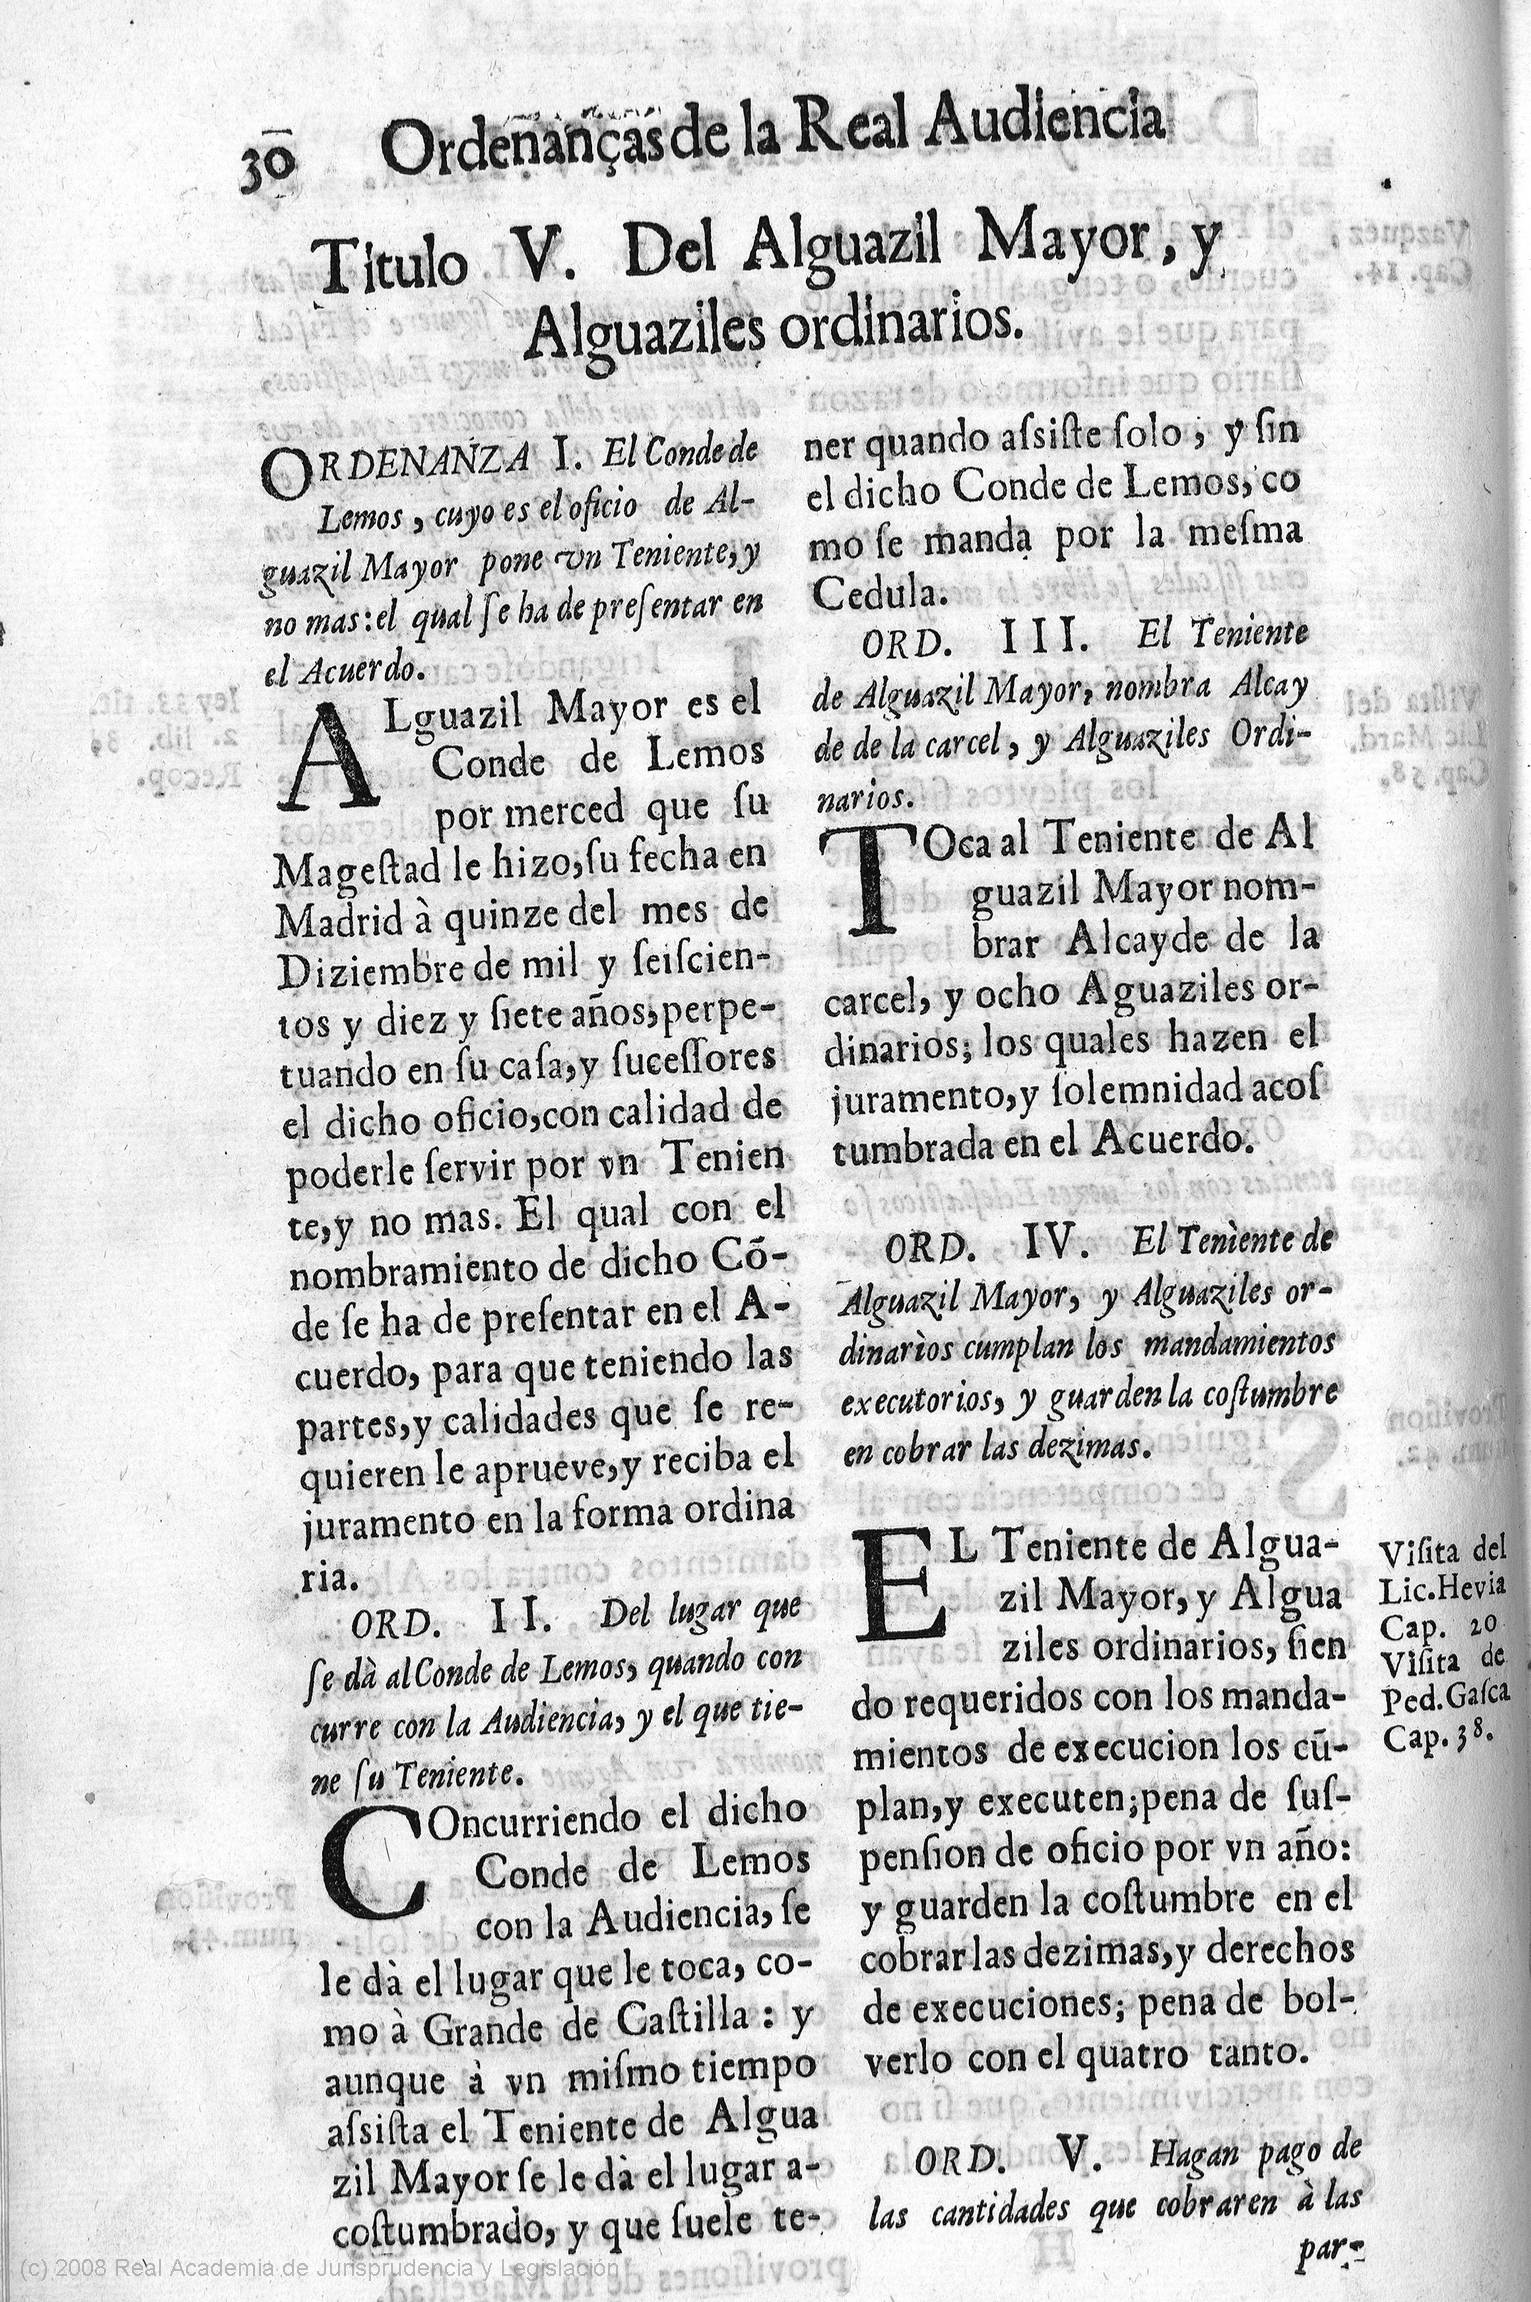 30 Ordenanças de la Real Audiencia
Titulo V. Del Alguazil Mayor, y
Alguaziles ordinarios.
ORDENANZA I. El Conde de
Lemos, cuyo es el oficio de Al-
guazil Mayor pone vn Teniente, y
no mas: el qual ſe ha de preſentar en
el Acuerdo.
ALguazil Mayor es el
Conde de Lemos
por merced que ſu
Mageſtad le hizo, ſu fecha en
Madrid à quinze del mes de
Diziembre de mil y ſeiſcien-
tos y diez y ſiete años, perpe-
tuando en ſu caſa, y ſuceſſores
el dicho oficio, con calidad de
poderle ſervir por vn Tenien
te, y no mas. El qual con el
nombramiento de dicho Cõ-
de ſe ha de preſentar en el A-
cuerdo, para que teniendo las
partes, y calidades que ſe re-
quieren le aprueve, y reciba el
juramento en la forma ordina
ria.
ORD. II. Del lugar que
ſe dà al Conde de Lemos, quando con
curre con la Audiencia, y el que tie-
ne ſu Teniente.
COncurriendo el dicho
Conde de Lemos
con la Audiencia, ſe
le dà el lugar que le toca, co-
mo à Grande de Caſtilla: y
aunque à vn miſmo tiempo
aſsiſta el Teniente de Algua
zil Mayor ſe le dà el lugar a-
coſtumbrado, y que ſuele te-
ner quando aſsiſte ſolo, y ſin
el dicho Conde de Lemos, co
mo ſe manda por la meſma
Cedula.
ORD. III. El Teniente
de Alguazil Mayor, nombra Alcay
de de la carcel, y Alguaziles Ordi-
narios.
TOca al Teniente de Al
guazil Mayor nom-
brar Alcayde de la
carcel, y ocho Aguaziles or-
dinarios; los quales hazen el
juramento, y ſolemnidad acoſ
tumbrada en el Acuerdo.
ORD. IV. El Teniente de
Alguazil Mayor, y Alguaziles or-
dinarios cumplan los mandamientos
executorios, y guarden la coſtumbre
en cobrar las dezimas.
EL Teniente de Algua-
zil Mayor, y Algua
ziles ordinarios, ſien
do requeridos con los manda-
mientos de execucion los cũ-
plan, y executen; pena de ſuſ-
penſion de oficio por vn año:
y guarden la coſtumbre en el
cobrar las dezimas, y derechos
de execuciones; pena de bol-
verlo con el quatro tanto.
ORD. V. Hagan pago de
las cantidades que cobraren à las
par-
Viſita del
Lic. Hevia
Cap. 20
Viſita de
Ped. Gaſca
Cap. 38.
(c) 2008 Real Academia de Jurisprudencia y Legislación